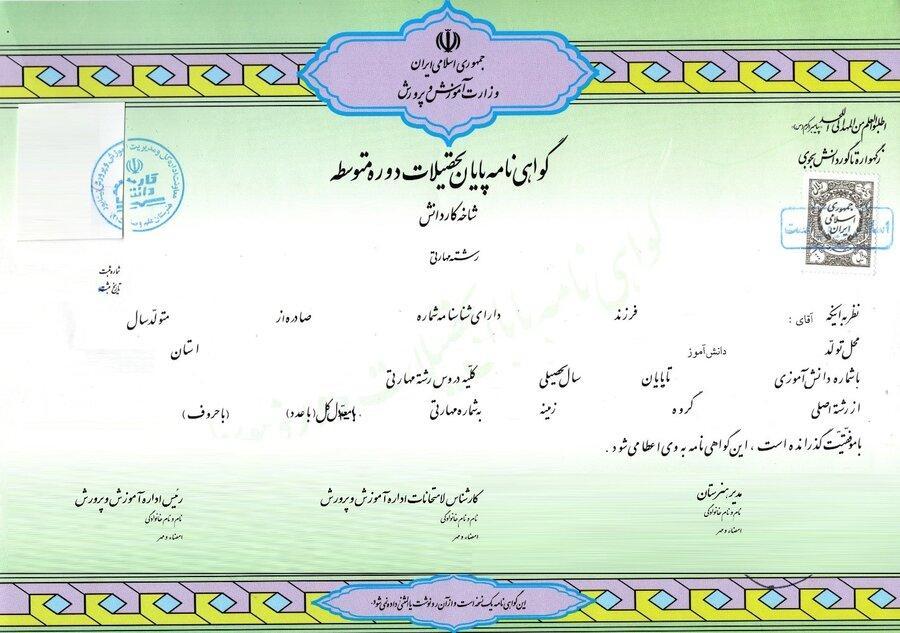 جمهوری اسلامی ایران
وزارت آموزش و پرورش
اطلبوا العلم من المهد الی اللحد پیامبر اکرم (ص)
ز گهواره تا گور دانش بجوی
گواهی نامه پایان تحصیلات دوره متوسطه
شاخه کاردانش
رشته مهارتی
جمهوری
اسلامی
ایران
شماره ثبت
تاریخ ثبت
نظر به اینکه آقای : فرزند دارای شناسنامه شماره صادره از متولد سال
محل تولد دانش‌آموز استان
با شماره دانش آموزی تا پایان سال تحصیلی کلیه دروس رشته مهارتی
از رشته اصلی گروه زمینه به شماره مهارتی با معدل کل (با عدد) (با حروف)
با موفقیت گذرانده است ، این گواهی نامه به وی اعطا می شود .
مدیر هنرستان
نام و نام خانوادگی
امضاء و مهر
کارشناس امتحانات اداره آموزش و پرورش
نام و نام خانوادگی
امضاء و مهر
رئیس اداره آموزش و پرورش
نام و نام خانوادگی
امضاء و مهر
این گواهی نامه یک نسخه است و از آن رونوشت یا المثنی داده نمی شود.